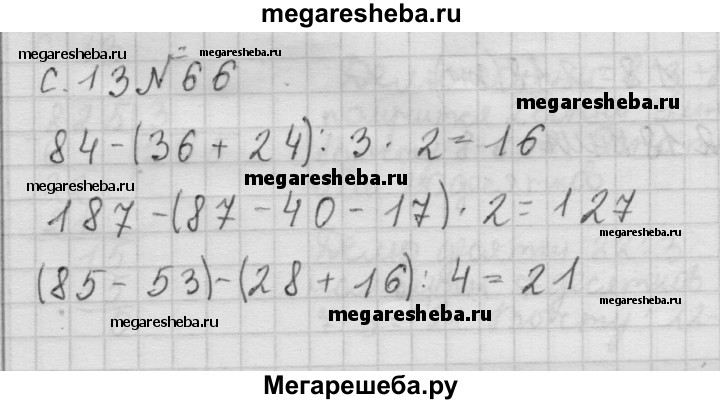 megaresheba.ru
megaresheba.ru megaresheba.ru
с. 13 № 66
megaresheba.ru
84 - (36 + 24) : 3 · 2 = 16
megaresheba.ru megaresheba.ru
187 - (87 - 40 - 17) · 2 = 127
megaresheba.ru
(85 - 53) - (28 + 16) : 4 = 21
megaresheba.ru
megaresheba.ru megaresheba.ru
Мегарешеба.ру